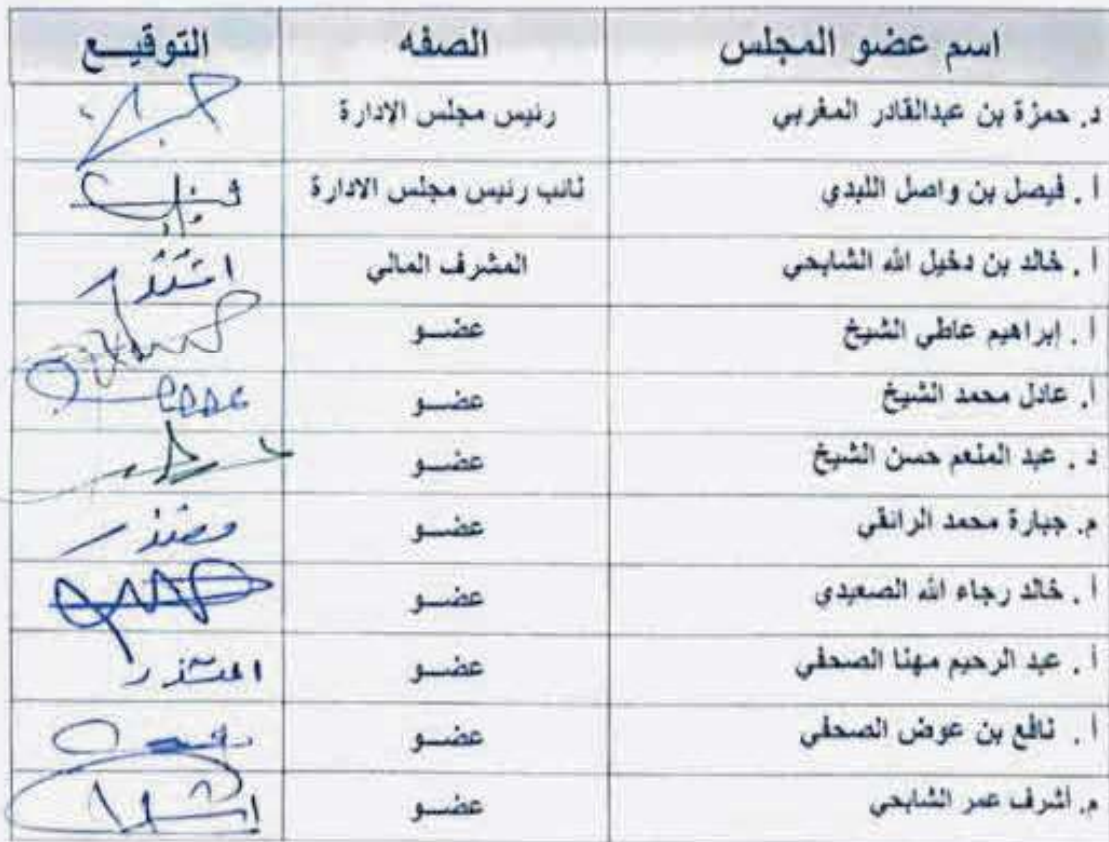 اسم عضو المجلس الصفه التوقيـــع
د. حمزة بن عبدالقادر المغربي رئيس مجلس الادارة
أ . فيصل بن واصل اللبدي نائب رئيس مجلس الادارة
أ . خالد بن دخيل الله الشابحي المشرف المالي اعتذر
أ . إبراهيم عاطي الشيخ عضــو
أ. عادل محمد الشيخ عضــو
د . عبد المنعم حسن الشيخ عضــو
م. جبارة محمد الرانقي عضــو معتذر
أ . خالد رجاء الله الصعيدي عضــو
أ . عبد الرحيم مهنا الصحفي عضــو اعتذر
أ . نافع بن عوض الصحفي عضــو
م. أشرف عمر الشابحي عضــو